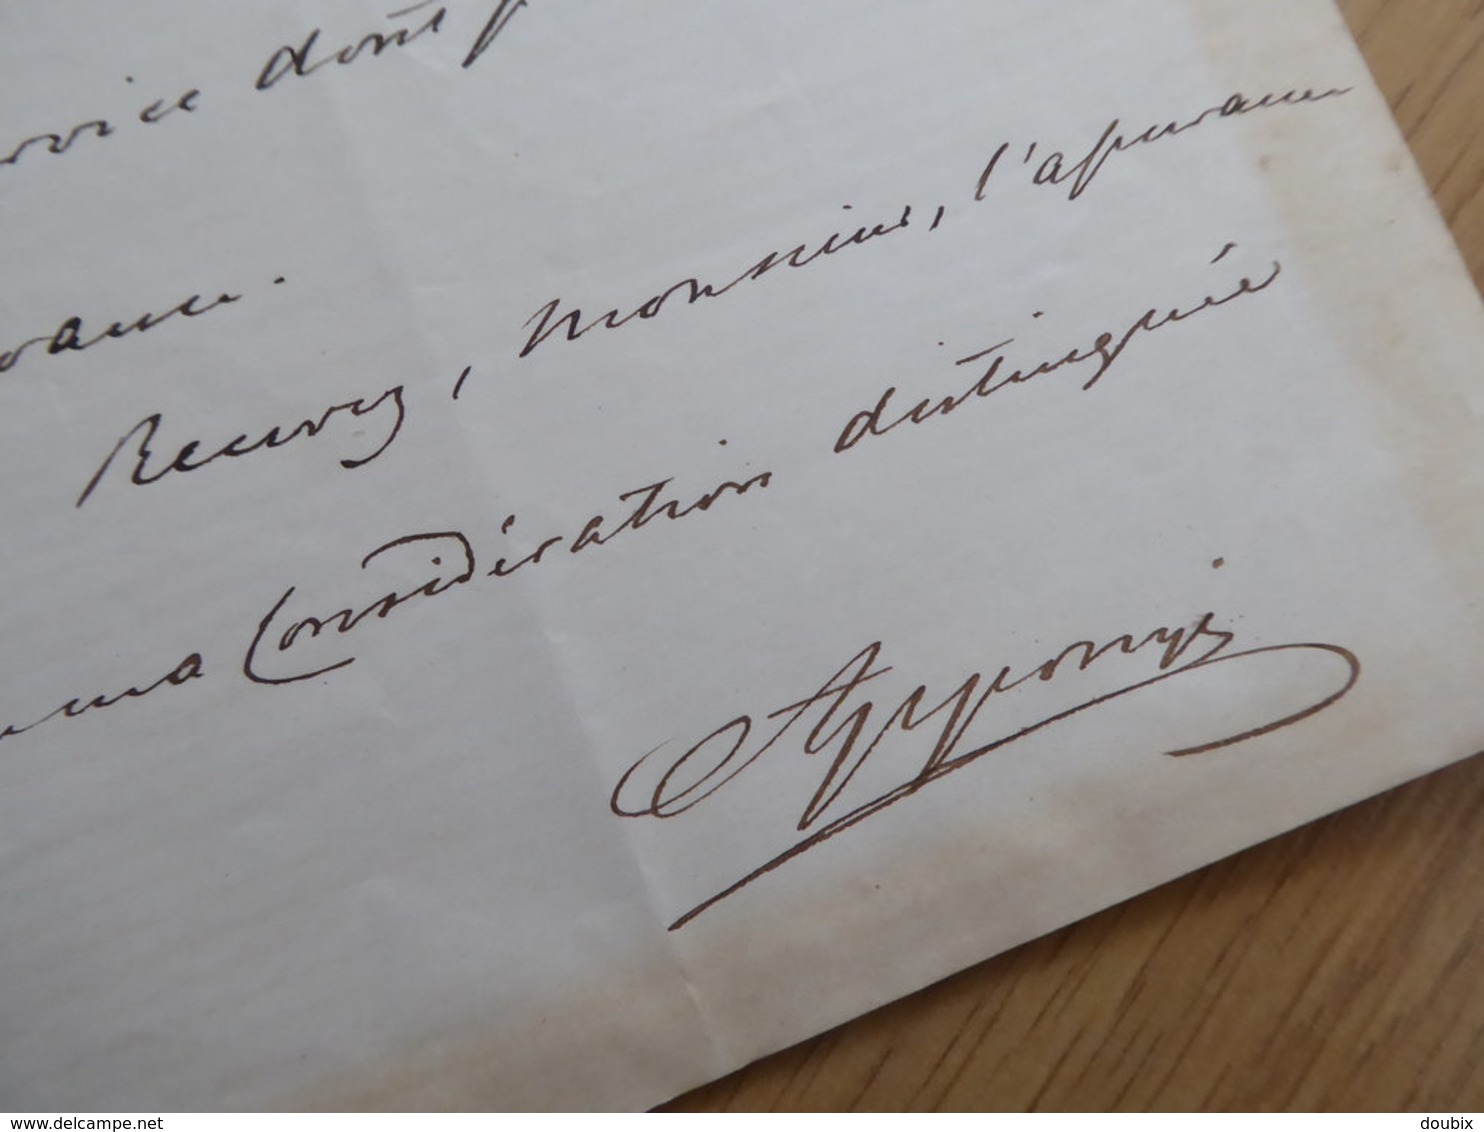 dont
Recevez, Monsieur, l'assurance
ma Considération distinguée
Apponyi
delcampe.net
doubix